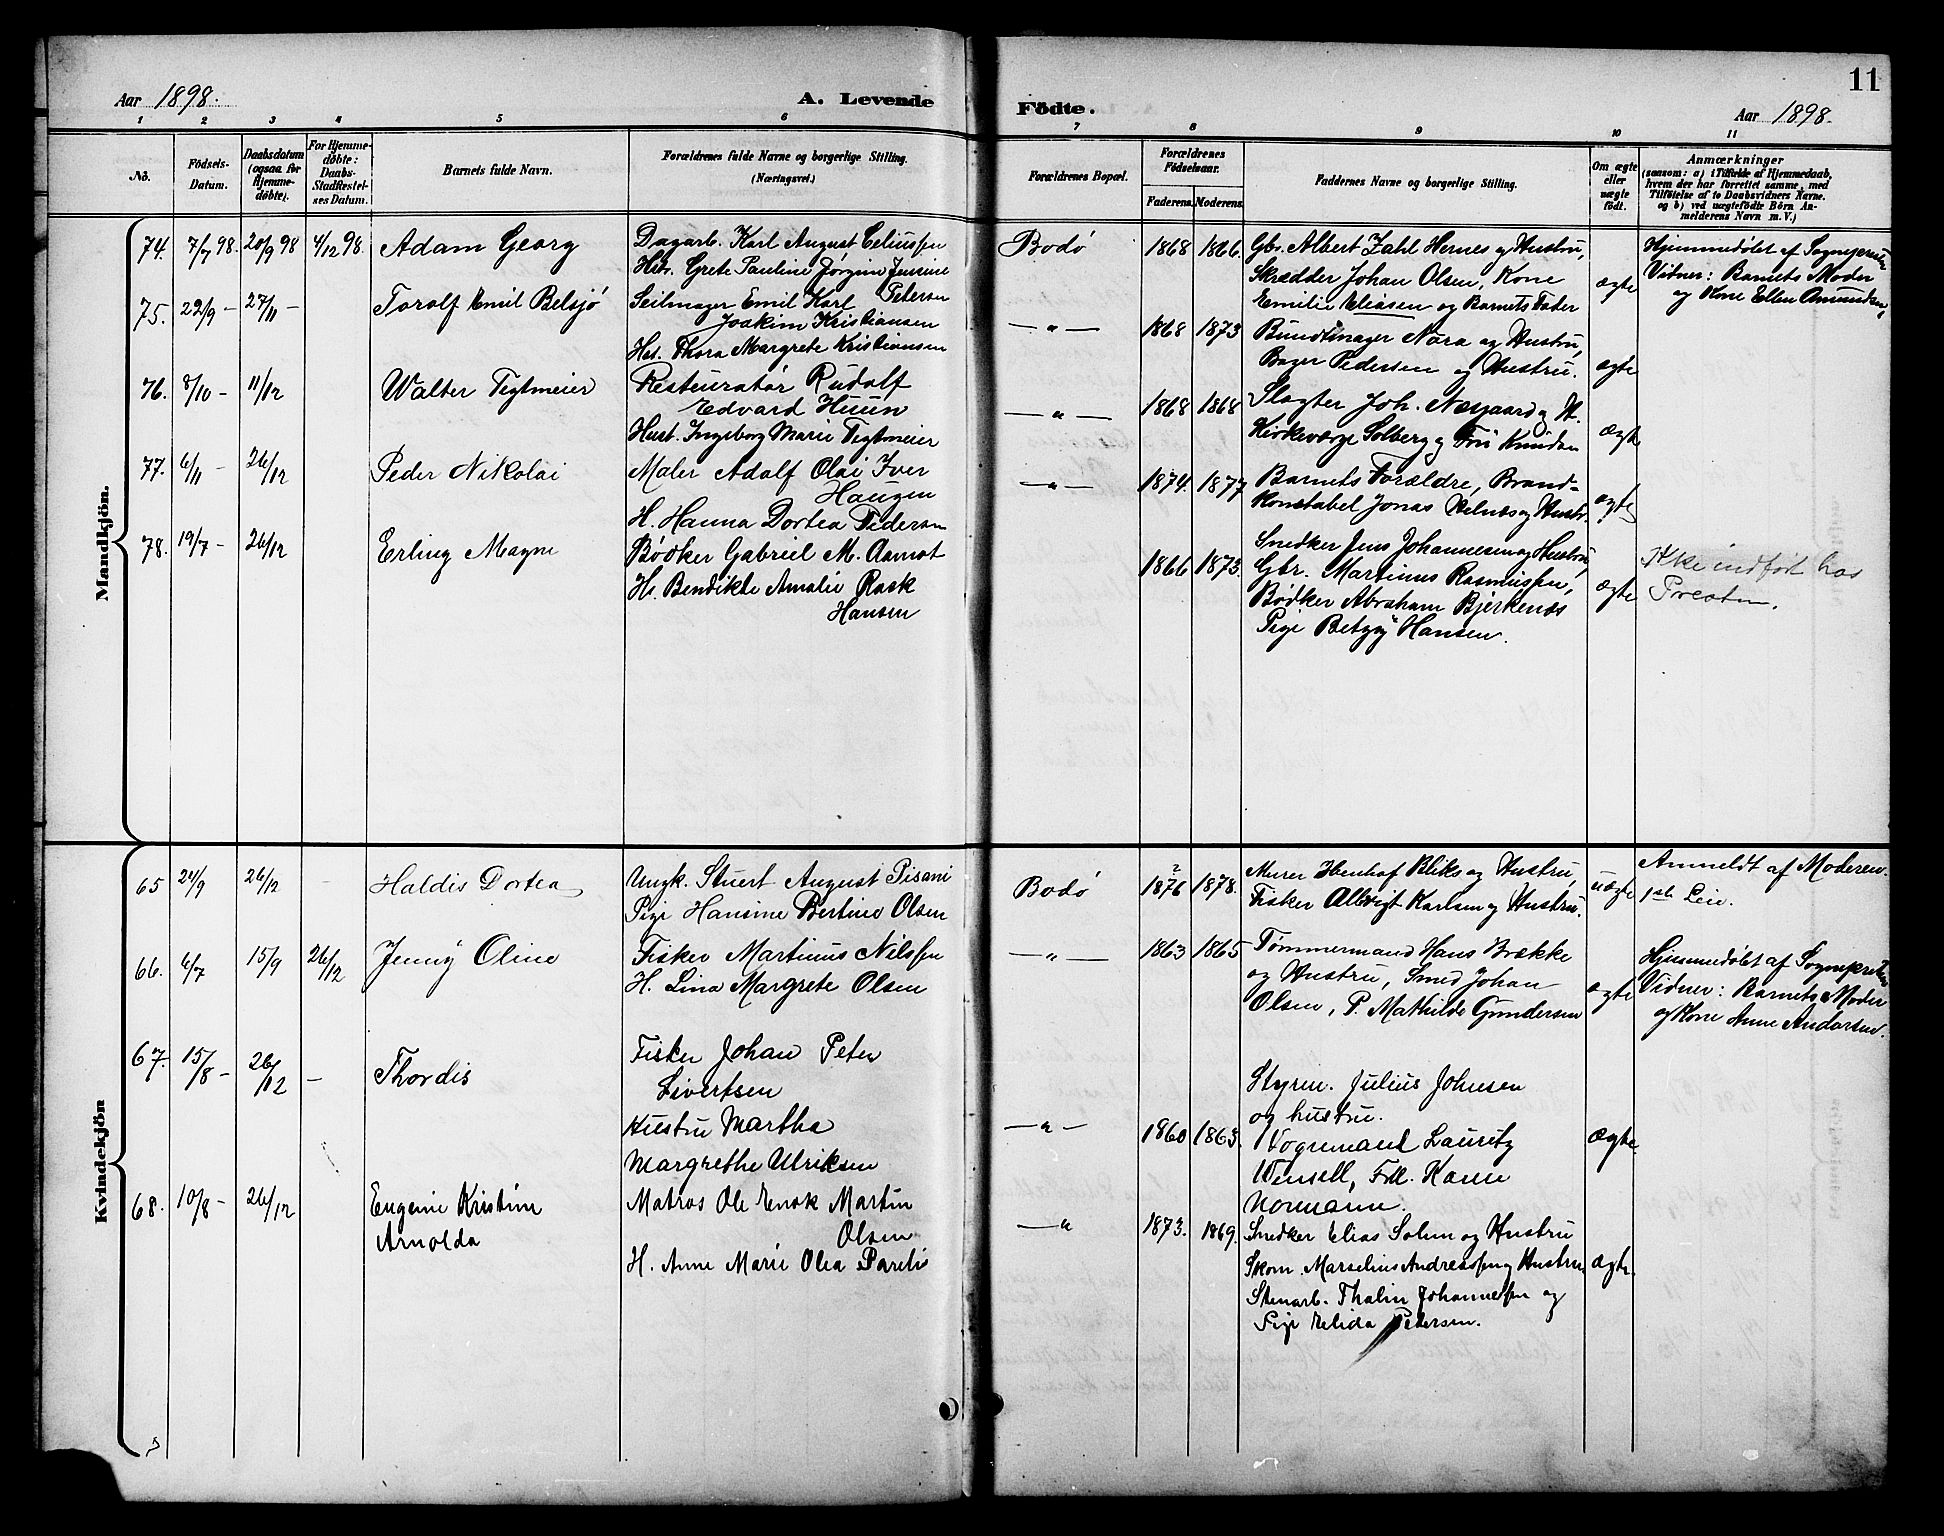 11
Aar 1898.
A. Levende
Födte.
Aar 1898.
1 2 3 4 5 6 7 8 9 10 11
No.
Födsels-Datum.
Daabsdatum (ogsaa for Hjemmedøbte).
For Hjemmedøbte: Daabs-Stadfæstelses Datum.
Barnets fulde Navn.
Forældrenes fulde Navne og borgerlige Stilling.
(Næringsvei.)
Forældrenes Bopæl.
Forældrenes Födselsaar.
Faderens. Moderens.
Faddernes Navne og borgerlige Stilling.
Om ægte eller uægte födt.
Anmærkninger
(saasom: a) i Tilfælde af Hjemmedaab,
hvem der har forrettet samme, med
Tilföielse af to Daabsvidners Navne.
og b) ved uægtefödte Börn Anmelderens Navn m.V.)
Mandkjön.
74. 7/7 98. 20/9 98 4/12 98. Adam Georg
Dagarb. Karl August Celiussen
Hstr. Grete Pauline Jørgine Jensine
Petersen
Bodø 1868 1866.
Gbr. Albert Zahl Hernes og Hustru,
Skrædder Johan Olsen, Kone
Emilie Eliasen og Barnets Fader
ægte
Hjemmedøbt af Sognepresten
Vidner: Barnets Moder
og Kone Ellen Amundsen,
75. 22/9 – 27/11 – Toralf Emil Belsjö
Seilmager Emil Karl
Joakim Kristiansen
Hst. Thora Margrete Kristiansen
— " — 1868 1873
Bundtmager Nøra og Hustru,
Bager Pedersen og Hustru.
ægte
76. 8/10 – 11/12 Walter Tigtmeier
Restauratør Rudolf
Edvard Huun
Hust. Ingeborg Marie Tigtmeier
— " — 1868 1868
Slagter Joh. Næsgaard og H.
Kirkeværge Solberg og Fru Knudsen
ægte
77. 6/11 – 26/12 Peder Nikolai
Maler Adolf Olai Iver
Haugen
H. Hanna Dortea Pedersen
— " — 1874. 1877
Barnets Forældre, Brand-
konstabel Jonas Velnes og Hustr.
ægte
78. 19/7 – 26/12 Erling Magne
Bødker Gabriel M. Aamot
Hs. Bendikte Amalie Rask
Hansen
1866 1873.
Snedker Jens Johannesen og Hustru,
Gbr. Martinus Rasmussen,
Bødker Abraham Bjerkenæs
Pige Betzy Hansen.
ægte
Ikke indført hos
Presten.
Kvindekjön
65 24/9 26/12 – Haldis Dortea
Ungk. Stuert August Pisani
Pige Hansine Bertine Olsen
Bodø 1876 1878.
Murer Ibenhof Bliks og Hustru,
Fisker Albrigt Karlsen og Hustru.
uægte
Anmeldt af Moderen.
1ste Leie.
66. 6/7 15/9 26/12 Jenny Oline
Fisker Martinus Nilssen
H. Lina Margrete Olsen
— " — 1863 1865
Tømmermand Hans Brække
og Hustru, Smed Johan
Olsen, P. Mathilde Gundersen
ægte
Hjemmedøbt af Sognepresten
Vidner: Barnets Moder
og Kone Anne Andersen.
67. 15/8 – 26/12 – Thordis
Fisker Johan Peter
Sivertsen
Hustru Martha
Margrethe Ulriksen
— " — 1860 1863.
Styrm. Julius Johnsen
og hustru.
Vognmand Lauritz
Wensell, Frk. Karen
Normann.
Ægte
68. 10/8 – 26/12 Eugenie Kristine
Arnolda
Matros Ole Enok Martin
Olsen
H. Anne Marie Olea Pareli
— " 1873. 1869.
Snedker Elias Solem og Hustru
Skom. Marselius Andreassen og Hustru
Stenarb. Thalin Johannessen og
Pige Elida Petersen.
ægte.